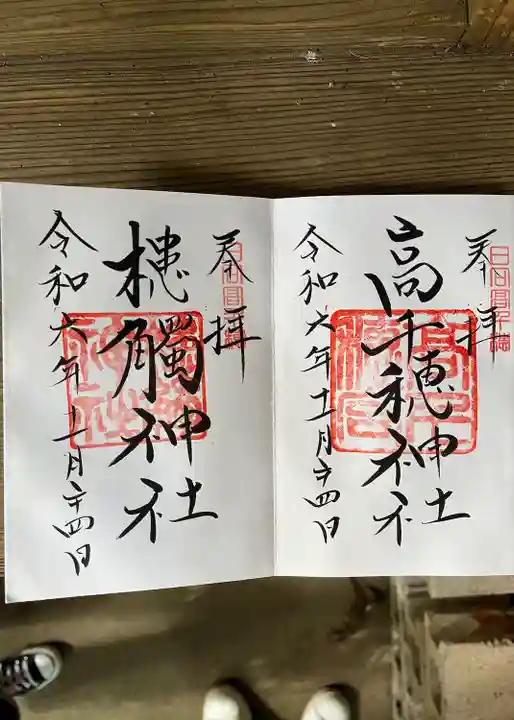 奉拝
高千穗神社
令和六年十一月廿四日
奉拝
槵觸神社
令和六年十一月廿四日